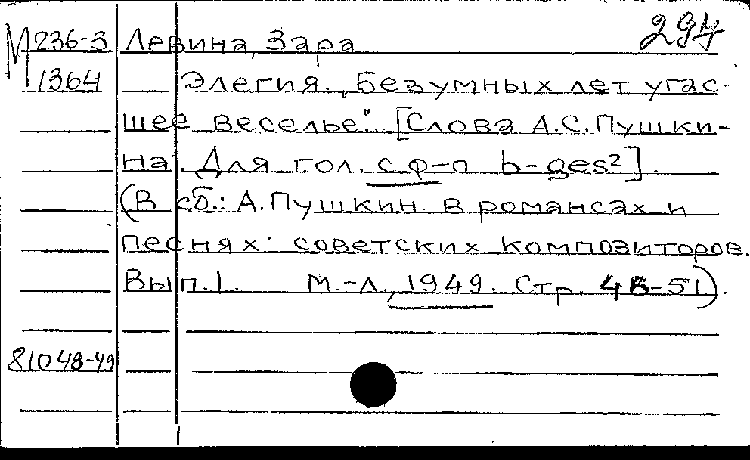 294
М 236-3 Левина, Зара
1364 Элегия. „Безумных лет угас-
шее веселье". [Слова А.С. Пушки-
на. Для гол. с ф-п b-ges²].
(В сб.: А. Пушкин в романсах и
песнях советских композиторов.
Вып. 1. М.-Л., 1949. Стр. 48-51).
81048-49